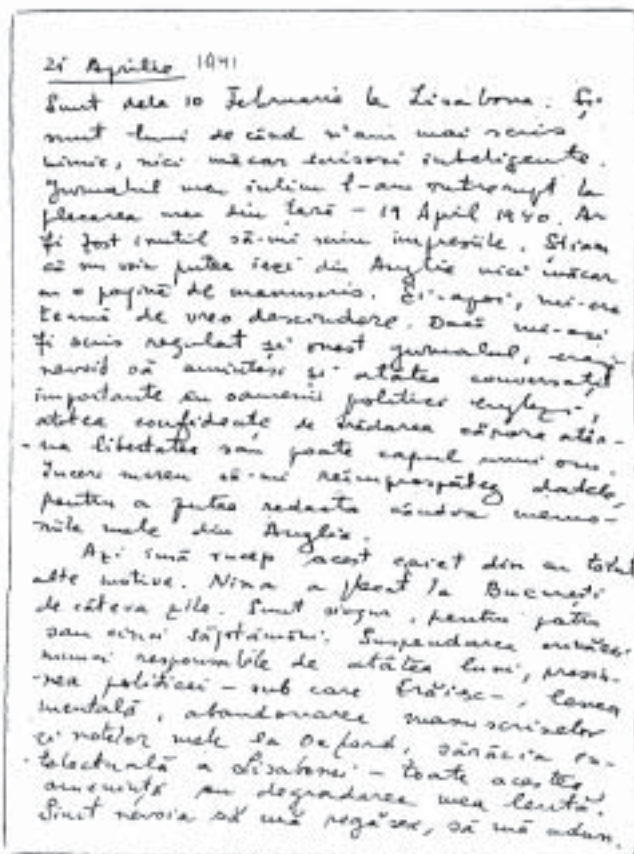 21 Aprilie 1941
Sunt dela 10 Februarie la Lisabona. Și
sunt luni de când n'am mai scris
nimic, nici măcar scrisori inteligente.
Jurnalul meu intim l-am întrerupt la
plecarea mea din țară – 19 April 1940. Ar
fi fost inutil să-mi scriu impresiile. Știam
că nu voiu putea ieși din Anglia nici măcar
cu o pagină de manuscris. Și-apoi, mi-era
teamă de vreo descindere. Dacă mi-aș
fi scris regulat și onest jurnalul, eram
nevoit să amintesc și atâtea conversații
importante cu oameni politici englezi,
atâtea confidențe de trădarea cărora atâr-
-na libertatea sau poate capul unui om.
Încerc mereu să-mi reîmprospătez datele,
pentru a putea redacta cândva memo-
riile mele din Anglia.
Azi însă încep acest caiet din cu totul
alte motive. Nina a plecat la București
de câteva zile. Sunt singur, pentru patru
sau cinci săptămâni. Suspendarea oricărei
munci responsabile de atâtea luni, presiu-
-nea politicei – sub care trăiesc –, lenea
mentală, abandonarea manuscriselor
și notelor mele la Oxford, sărăcia in-
-telectuală a Lisabonei – toate acestea
amenință cu degradarea mea lentă.
Simt nevoia să mă regăsesc, să mă adun.